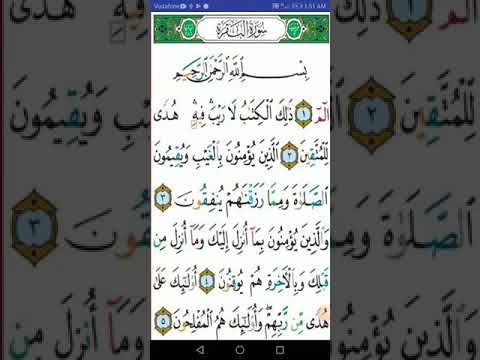 Vodafone
1:51 AM
سورة البقرة
بِسْمِ ٱللَّهِ ٱلرَّحْمَٰنِ ٱلرَّحِيمِ
الٓمٓ ١ ذَٰلِكَ ٱلْكِتَٰبُ لَا رَيْبَ فِيهِ هُدًى
لِّلْمُتَّقِينَ ٢ ٱلَّذِينَ يُؤْمِنُونَ بِٱلْغَيْبِ وَيُقِيمُونَ
ٱلصَّلَوٰةَ وَمِمَّا رَزَقْنَٰهُمْ يُنفِقُونَ ٣
وَٱلَّذِينَ يُؤْمِنُونَ بِمَآ أُنزِلَ إِلَيْكَ وَمَآ أُنزِلَ مِن
قَبْلِكَ وَبِٱلْءَاخِرَةِ هُمْ يُوقِنُونَ ٤ أُو۟لَٰٓئِكَ عَلَىٰ
هُدًى مِّن رَّبِّهِمْ وَأُو۟لَٰٓئِكَ هُمُ ٱلْمُفْلِحُونَ ٥